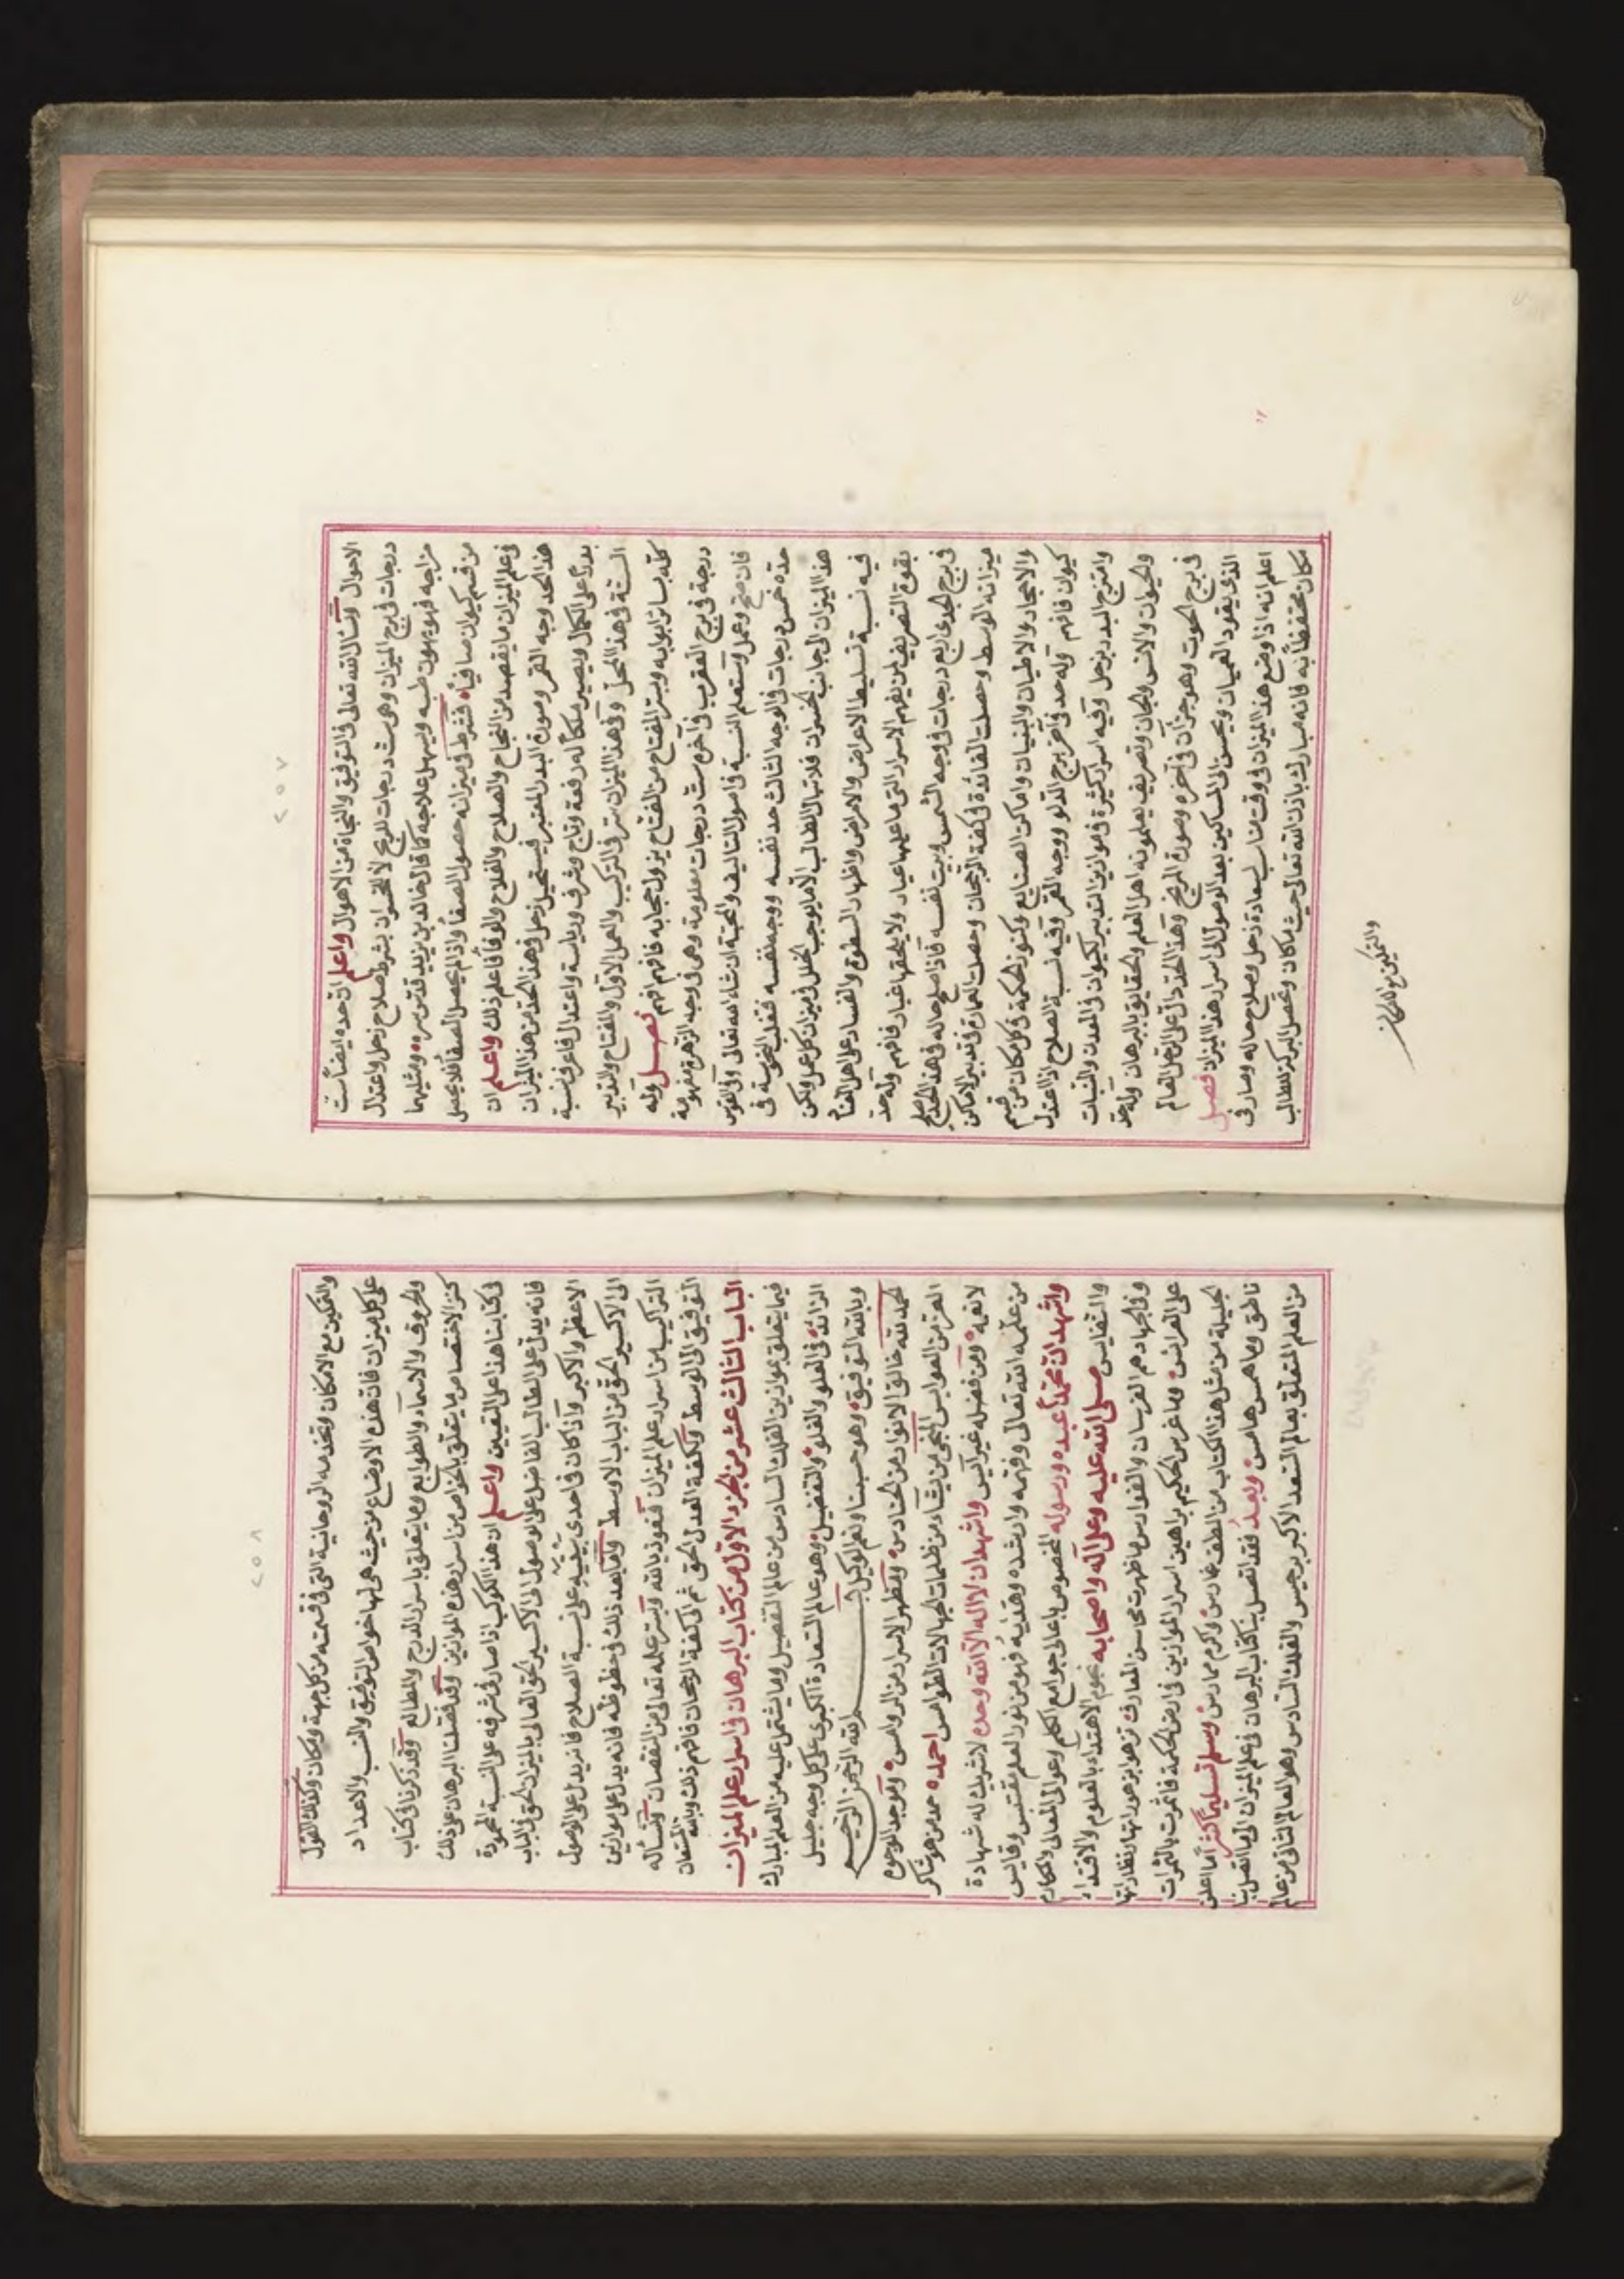 ٢٥٧
الاحوال ونسأل الله تعالى في التوفيق والنجاة من الاهوال واعلم ان حده ايضاً ست
درجات في برج الميزان وهى ست درجات للريح لا للخسران بشرط صلاح زحل واعتدال
مزاجه فهو يهون طبه ويسهل علاجه كما قال خالد بن يزيد قدس سره ومثليهما
من قسم كيوان صافياً فشرط في ميزانه حصول الصفا واذا لم يحصل الصفا فلا يحصل
في علم الميزان ما يقصد من النجاح والصلاح والفلاح والوفا فاعلم ذلك واعلم ان
هذا الحد وجه القمر وصورة البدر المعتبر فيستحيل زحل في هذا الحد من هذا الميزان
بدراً على الكمال ويصير ملكا له رفعة وتاج وشرف ورياسة واعتدال فاعرف نسبة
الستة في هذا المحل وفي هذا الميزان سر في التركيب والعمل الاول والمفتاح والتدبير
كله بسائر ابوابه وبستر المفتاح من المفتاح يزول حجابه فافهم افهم فصل وله
درجة في برج العقرب في آخره ست درجات معلومة وهي في وجه الزهرة مفهومة
فان صح وعمل وتستعلم النسبة في اصول التاليف والمحبة ان شاء الله تعالى وفي القوس
حده خمس درجات في الوجه الثالث حد نفسه ووجه نفسه فغلب النحوسة في
هذا الميزان الى جانب الخسران فلا تنال الطالب الا ما يوجب الخلل في ميزان كل عمل ولكن
فيه نسبة تسليط الاعراض والامراض واظهار السطوة والفساد على اهل العناد
بقوة التصريف لمن يفهم الاسرار التى ما عليها عيار ولا يلحقها غبار فافهم وله حد
في برج الجدي اربع درجات في وجه الشمس وبيت نفسه فاذا صلح حاله في هذا الحد صلح
ميزانه الوسط وحصلت الفائدة في كفة الرجحان وحصلت العمارة في تدبير الاماكن
والاحجار والاطيان والبنيان واماكن الصنايع وكنوز الحكمة في كل مكان من قسم
كيوان فافهم وله حد في آخر برج الدلو ووجه القمر وفيه نسبة الصلاح اذا اعتدل
وامتزج البدر بزحل وفيه اسرار كثيرة في موازين التدبير لكيوان في المعدن والنبات
والحيوان والانس والجان وتصريف يعلمونه اهل العلم والحقايق بالبرهان وله حد
في برج الحوت وهو جزآن في آخره وصورة المريخ وهذا الحد دال على الرجل العالم
الذى يقود العميان ويحسن الى المساكين بعد الوصول الى اسرار هذا الميزان فصل
اعلم انه اذا وضع هذا الميزان في وقت مناسب لسعادة زحل وصلاح حاله وصار في
مكان محتفظاً به فانه مبارك باذن الله تعالى حيث ما كان وتحصل البركة للطالب
والتمكين مع الامكان
٢٥٨
والتمكين مع الامكان وتخدمه الروحانية التى في قسمته من كل جهة ومكان وكذلك القول
على كل ميزان فان هذه الاوضاع من حيث هى لها خواص التوفيق والنسب والاعداد
والحروف والاسماء والطوابع وما يتعلق باسرار الدرج والمطالع وقد ذكرنا في كتاب
كنز الاختصاص ما يتعلق بالخواص من اسرار هذه الموازين وقد فصلنا البرهان على ذلك
في كتابنا هذا على التعيين واعلم ان هذا الكوكب اذا صار في شرفه على النسبة المحمودة
فانه يدل على الطالب الفاضل على الوصول الى الاكسير الحق العالى بالميزان الحق في الباب
الاعظم والاكبر واذا كان في احدى بيتيه على نسبة الصلاح فانه يدل على الوصول
الى الاكسير الحق من الباب الاوسط واما بعد ذلك في حظوظه فانه يدل على موازين
التراكيب من اسرار علم الميزان فنعوذ بالله وبستر علمه تعالى من النقصان ونسأله
التوفيق الى الوسط وكفة العدل الحق ثم الى كفة الرجحان فافهم ذلك وبالله المستعان
الباب الثالث عشر من الجزء الاول من كتاب البرهان في اسرار علم الميزان
فيما يتعلق بموازين الفلك السادس من عالم التفصيل وما يشتمل عليه من العلم المبارك
الزائد في العلو والغلو والتفضيل وهو عالم السعادة الكبرى على كل وجه جليل
وبالله التوفيق وهو حسبنا ونعم الوكيل بسم الله الرحمن الرحيم
الحمد لله خالق الانوار من الحنادس ومظهر الاسرار من الروامس وموجد الوجوه
الغرر من العوابس المنجى من يشاء من ظلمات الجهالات الطوامس احمده حمد من هو شاكر
لانعمه ومن فضله غير آيس واشهد ان لا اله الا الله وحده لا شريك له شهادة
من علمه الله تعالى وفهمه وارشده وهداه فهو من نور العلم مقتبس وقايس
واشهد ان محمداً عبده ورسوله المخصوص باعالى جوامع الكلم وعوالى المعالى والمكارم
والنفايس صلى الله عليه وعلى آله واصحابه نجوم الاهتداء بالعلوم والاقتداء
وفي الجهاد هم الفرسان والفوارس ما ظهرت محاسن المعارف تزهوا بزهوراتها ونظاراتها
على العرائس وما غرس الحكيم براهين اسرار الموازين في ارض الحكمة فاثمرت بالثمرات
الجليلة من مثل هذا الكتاب من الطف غارس واكرم ممارس وسلم تسليماً كثيراً ما اعلن
ناطق وما همس هامس وبعد فقد اتصل بنا كتاب البرهان في علم الميزان الى ما اتصل بنا
من العلم المتعلق بعالم السعد الاكبر برجيس والفلك السادس وهو العالم الثانى من عالم